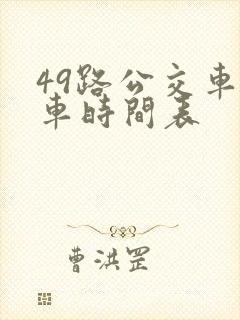 49路公交車
車時間表
曹洪罡